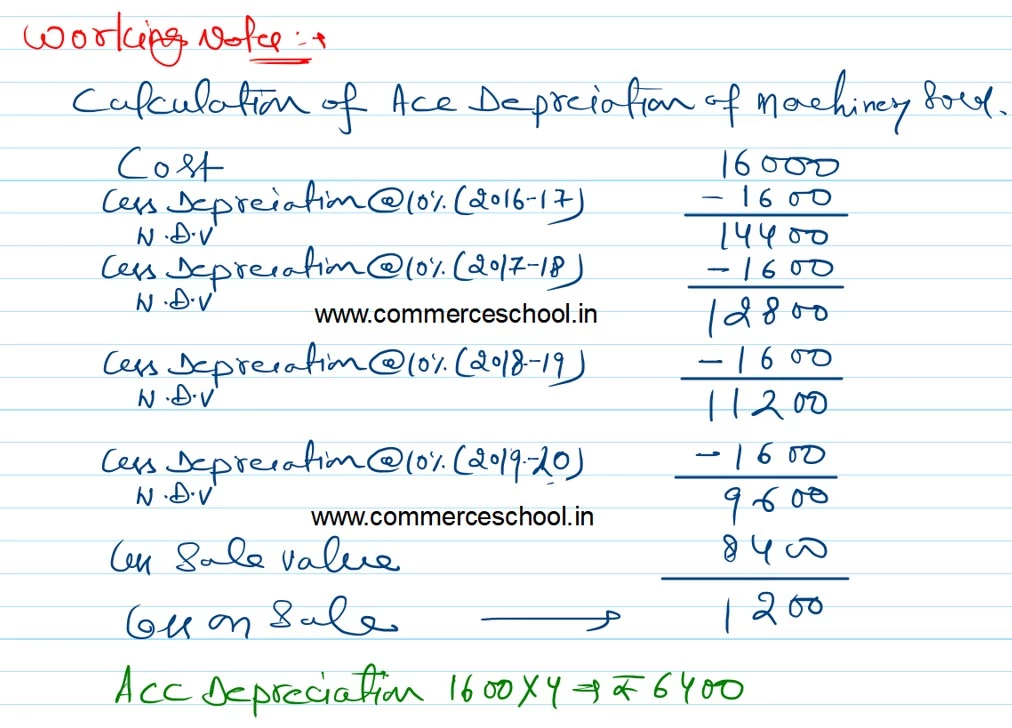 Working Note :→
Calculation of Acc Depreciation of Machinery Sold.
Cost 16000
Less Depreciation @ 10% (2016-17) - 1600
W.D.V 14400
Less Depreciation @ 10% (2017-18) - 1600
W.D.V 12800
www.commerceschool.in
Less Depreciation @ 10% (2018-19) - 1600
W.D.V 11200
Less Depreciation @ 10% (2019-20) - 1600
W.D.V 9600
www.commerceschool.in
Less Sale value 8400
Loss on Sale → 1200
Acc Depreciation 1600 X 4 → ₹ 6400